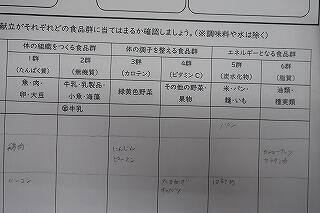 献立がそれぞれどの食品群に当てはまるか確認しましょう。(※調味料や水は除く)
体の組織をつくる食品群 体の調子を整える食品群 エネルギーとなる食品群
1群 2群 3群 4群 5群 6群
(たんぱく質) (無機質) (カロテン) (ビタミンC) (炭水化物) (脂質)
魚・肉・ 牛乳・乳製品・ 緑黄色野菜 その他の野菜・ 米・パン・ 油類・
卵・大豆 小魚・海藻 果物 麺・いも 種実類
㊝牛乳
パン
鶏肉 にんじん
ピーマン
ベーコン たまねぎ はるさめ
キャベツ